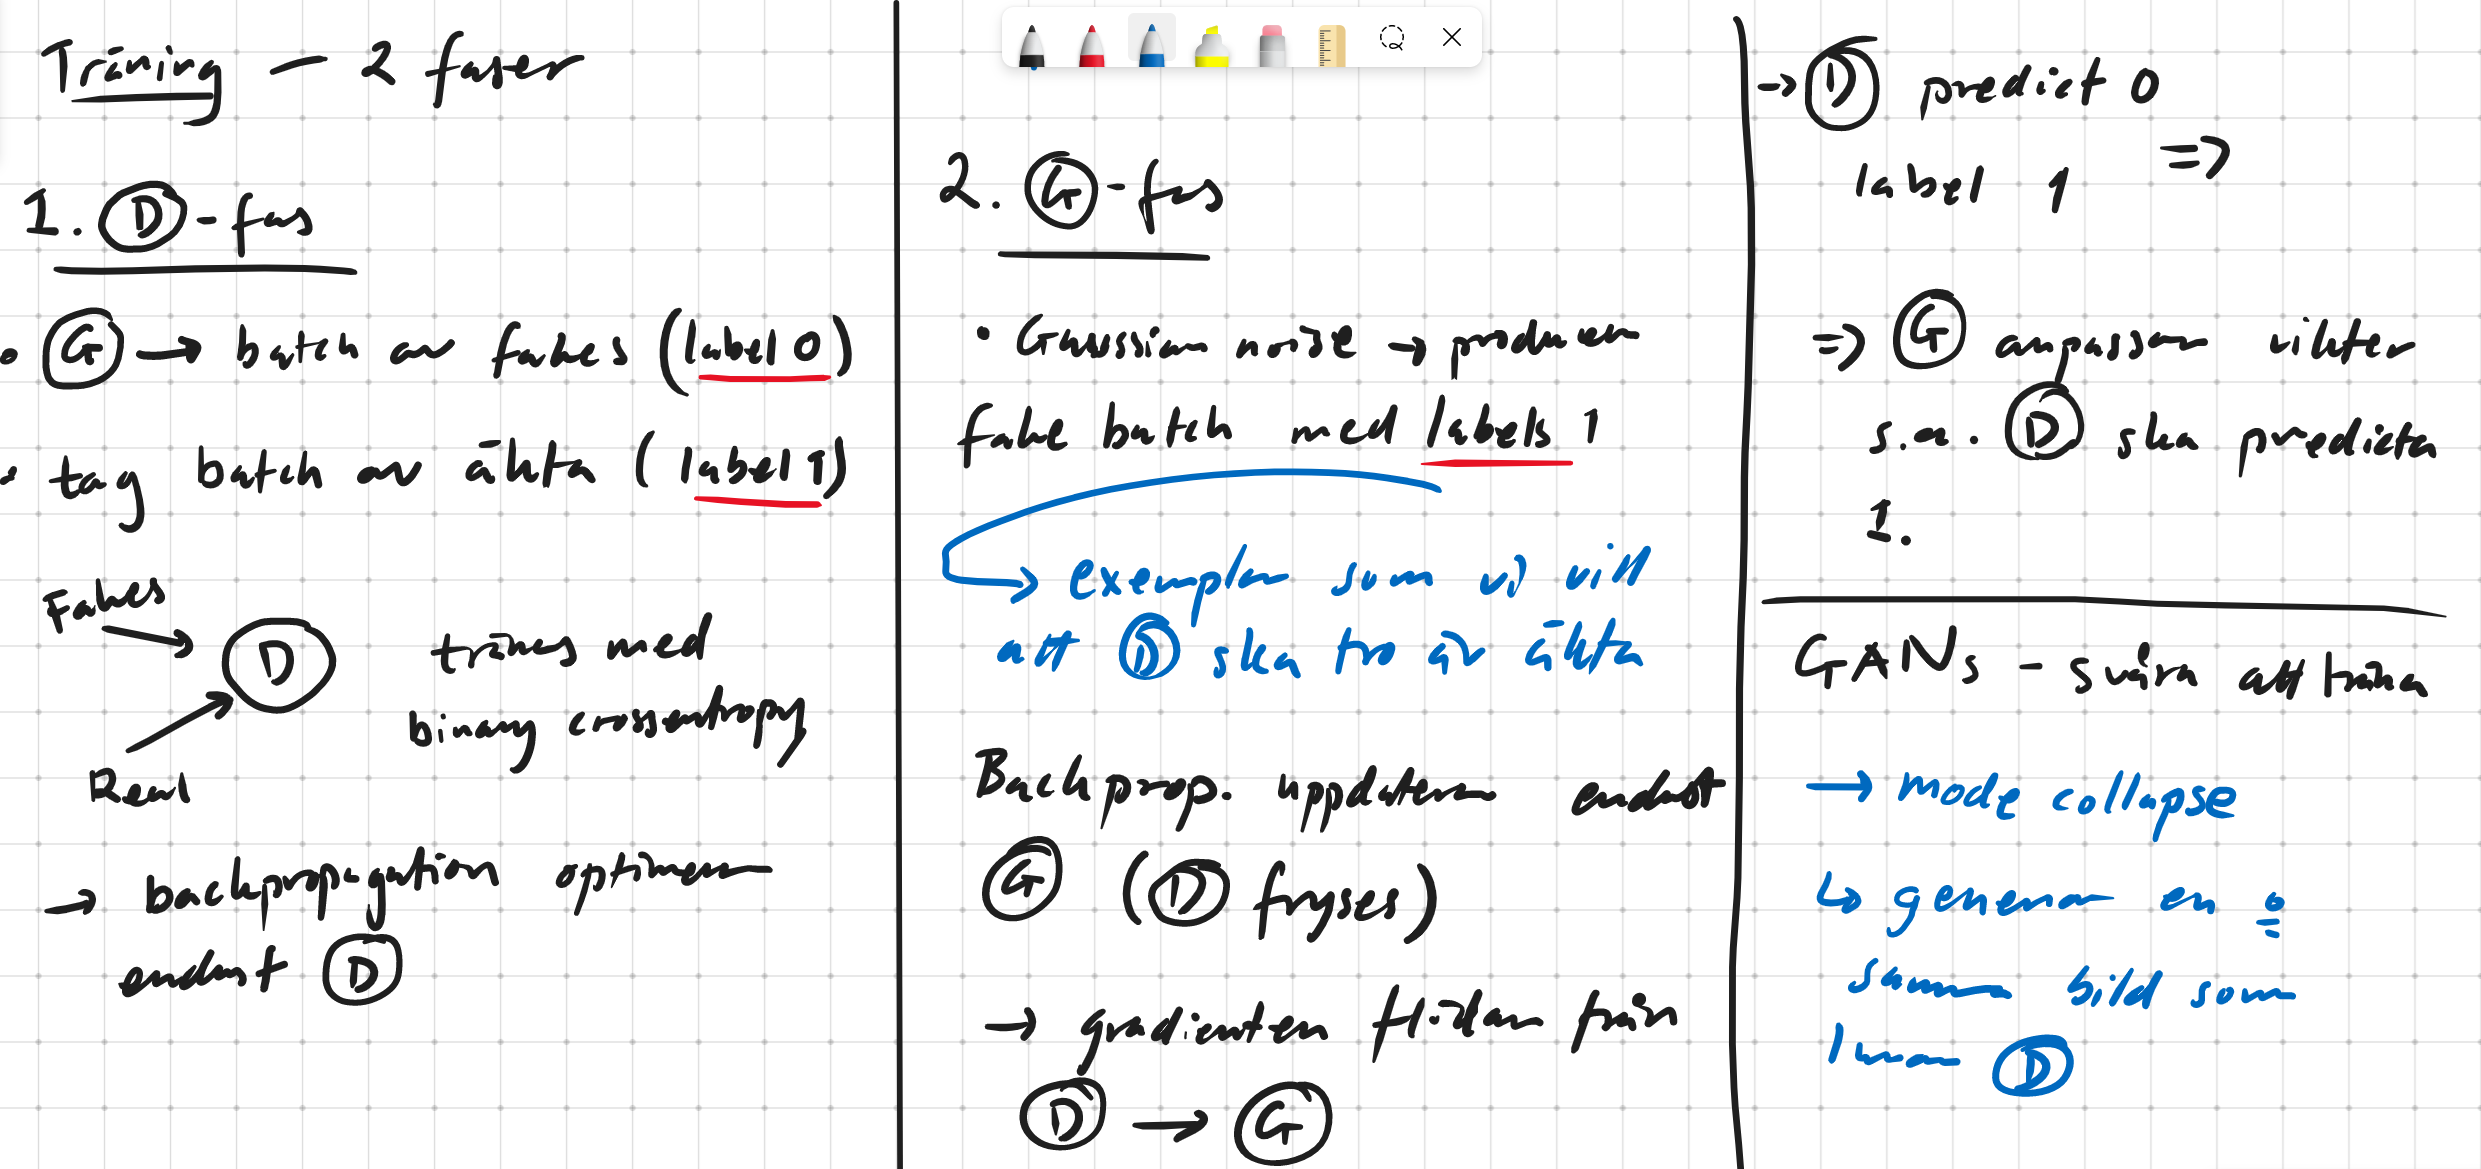 Träning - 2 faser
1. D - fas
• G → batch av fakes (label 0)
• tag batch av äkta (label 1)
Fakes
D tränas med
binary crossentropy
Real
→ backpropagation optimerar
endast D
2. G - fas
• Gaussian noise → producerar
fake batch med labels 1
→ exemplar som vi vill
att D ska tro är äkta
Backprop. uppdaterar endast
G (D fryses)
→ gradienten flödar från
D → G
→ D predict 0
label 1 =>
=> G anpassar vikter
s.a. D ska predicta
1.
GANs - svåra att träna
→ mode collapse
↳ generar en o
samma bild som
lurar D